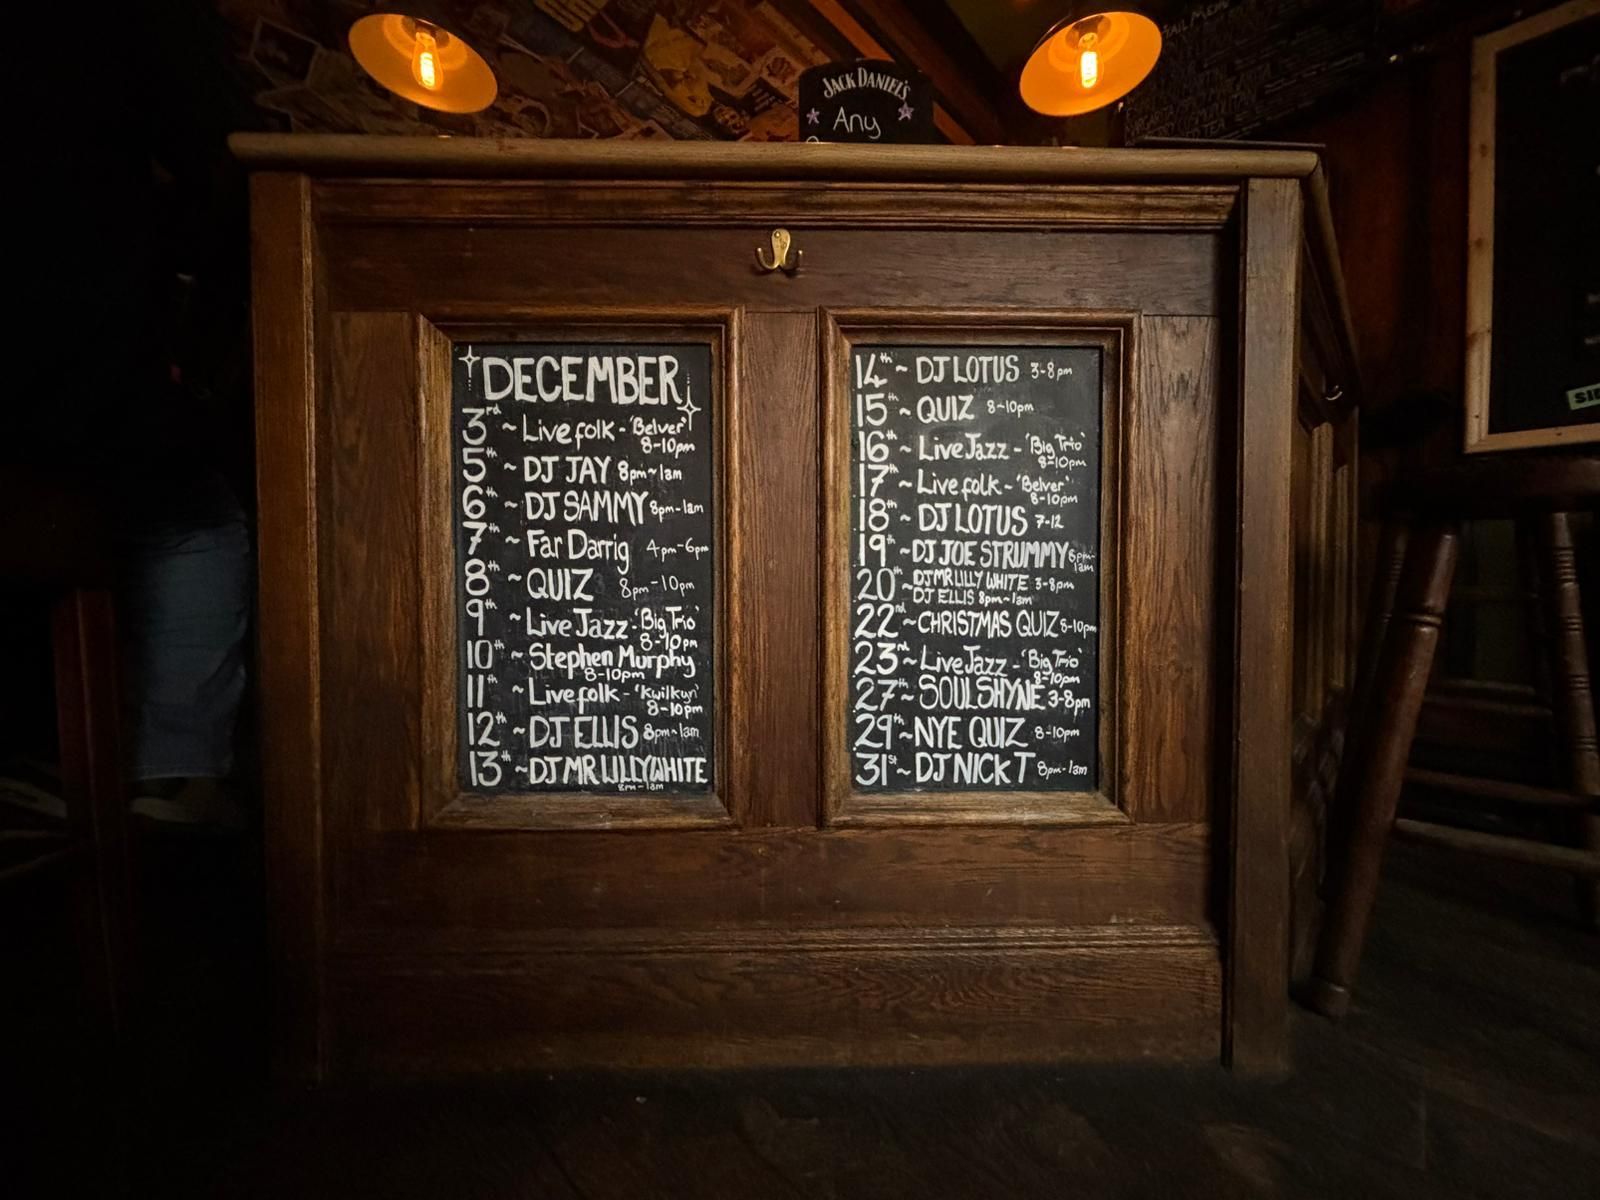 JACK DANIEL'S
Any
DECEMBER
3rd ~ Live folk - 'Belver'
8-10pm
5th ~ DJ JAY 8pm~1am
6th ~ DJ SAMMY 8pm-1am
7th ~ Far Darrig 4pm-6pm
8th ~ QUIZ 8pm-10pm
9th ~ Live Jazz - 'Big Trio'
8-10pm
10th ~ Stephen Murphy
8-10pm
11th ~ Live folk - 'Kwilkyn'
8-10pm
12th ~ DJ ELLIS 8pm~1am
13th ~ DJ MR LILLY WHITE
8pm-1am
14th ~ DJ LOTUS 3-8pm
15th ~ QUIZ 8-10pm
16th ~ Live Jazz - 'Big Trio'
8-10pm
17th ~ Live folk - 'Belver'
8-10pm
18th ~ DJ LOTUS 7-12
19th ~ DJ JOE STRUMMY 8pm-
1am
20th ~ DJ MR LILLY WHITE 3-8pm
DJ ELLIS 8pm-1am
22nd ~ CHRISTMAS QUIZ 8-10pm
23rd ~ Live Jazz - 'Big Trio'
8-10pm
27th ~ SOULSHYNE 3-8pm
29th ~ NYE QUIZ 8-10pm
31st ~ DJ NICK T 8pm-1am